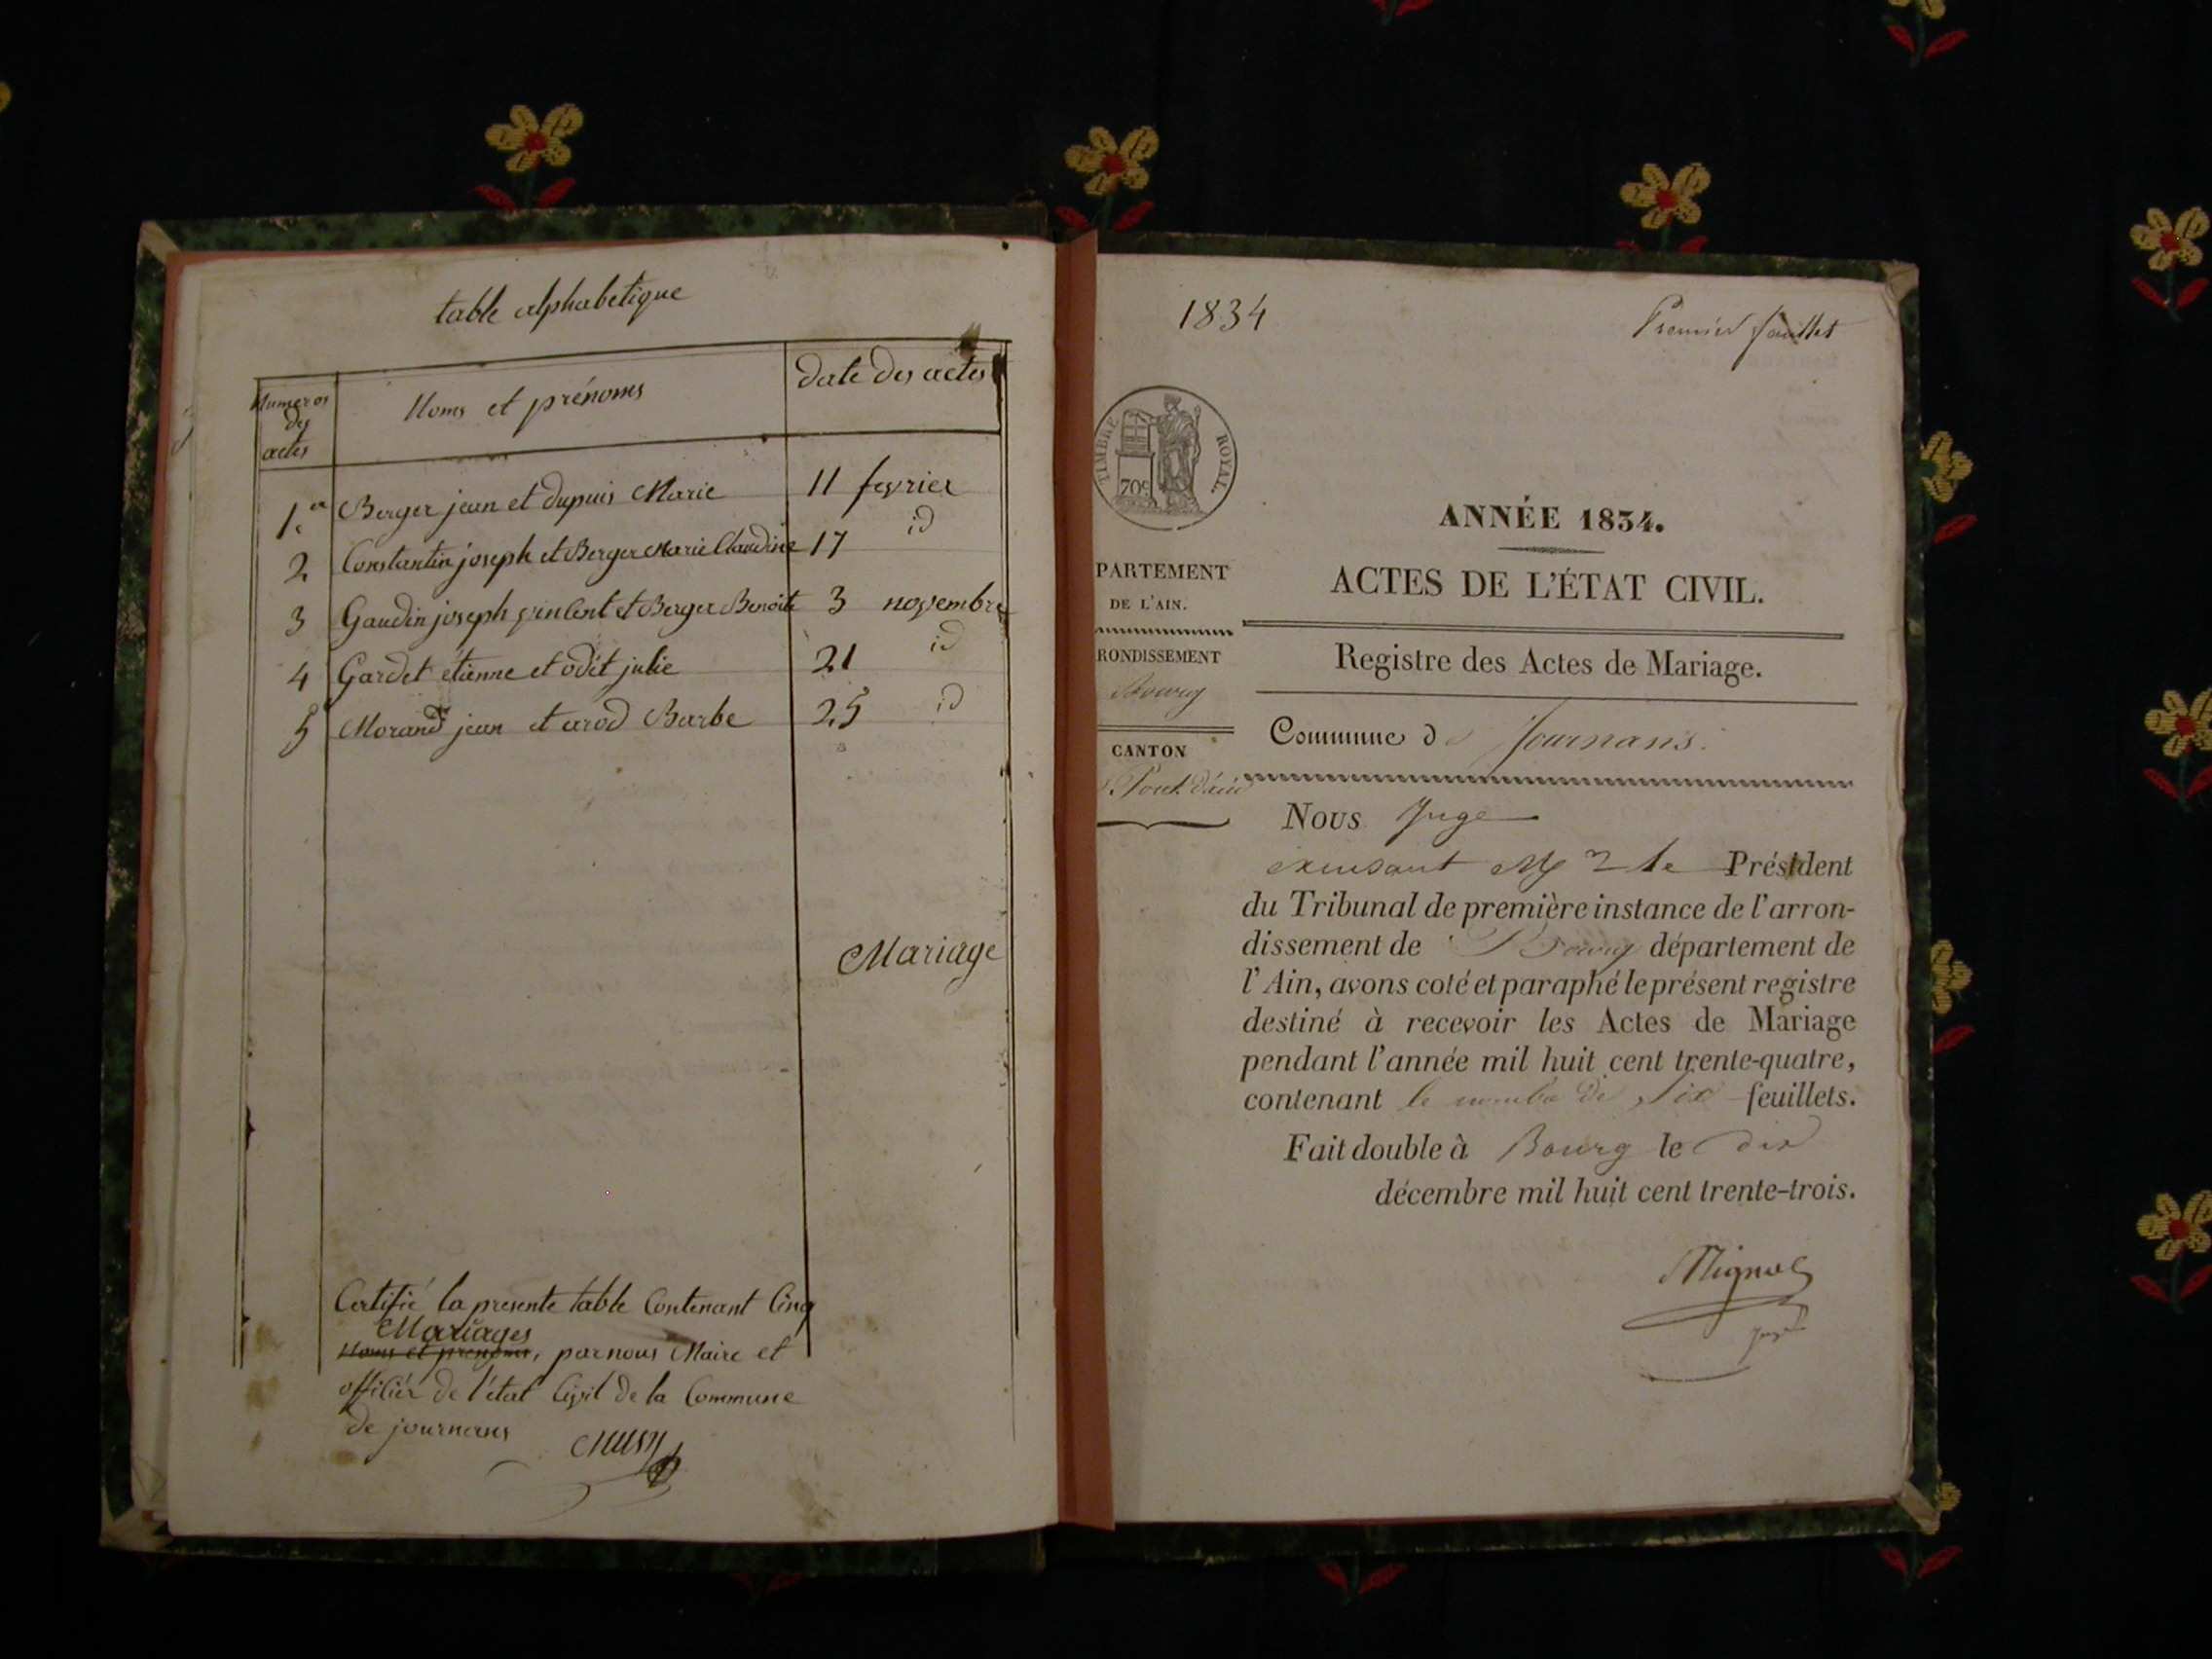 table alphabetique
Numeros des actes
Noms et prénoms
date des actes
1.er Berger jean et dupuis Marie 11 fevrier
2 Constantin joseph et Berger Marie Claudine 17 id
3 Gaudin joseph vincent et Berger Benoite 3 novembre
4 Gardet étienne et odet julie 21 id
5 Morand jean et arod Barbe 25 id
Mariage
Certifié la presente table Contenant Cinq
Mariages
Noms et prenoms, par nous Maire et
officiér de l'état Civil de la Commune
de journans
1834
Premier feuillet
TIMBRE ROYAL.
70c
ANNÉE 1834.
ACTES DE L'ÉTAT CIVIL.
Registre des Actes de Mariage.
PARTEMENT
DE L'AIN.
RONDISSEMENT
Bourg
CANTON
Pont d'ain
Commune d Journans.
Nous Juge
Mr le Président
du Tribunal de première instance de l'arron-
dissement de Bourg département de
l'Ain, avons coté et paraphé le présent registre
destiné à recevoir les Actes de Mariage
pendant l'année mil huit cent trente-quatre,
contenant le nombre de Six feuillets.
Fait double à Bourg le dix
décembre mil huit cent trente-trois.